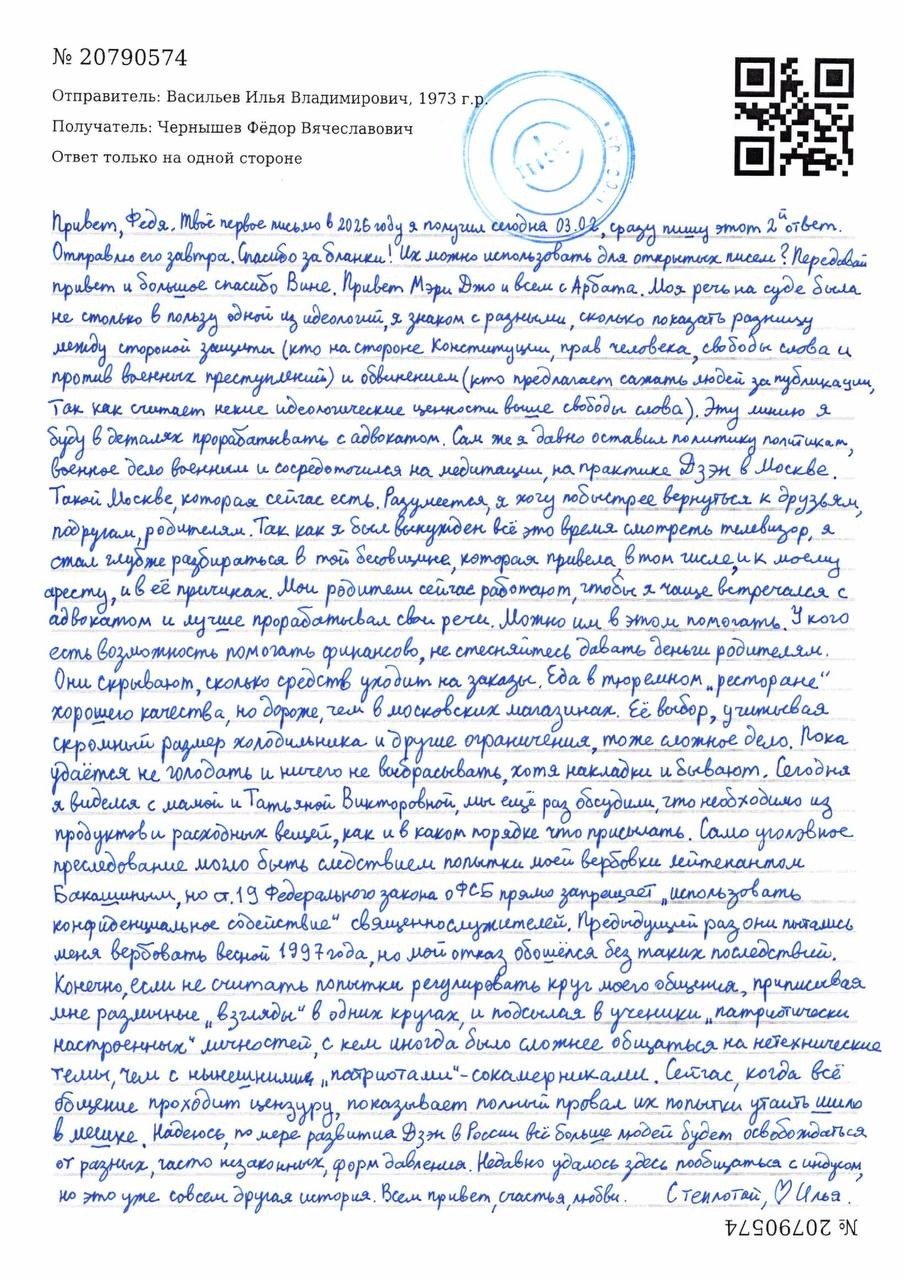 № 20790574
Отправитель: Васильев Илья Владимирович, 1973 г.р.
Получатель: Чернышев Фёдор Вячеславович
Ответ только на одной стороне
Привет, Федя. Твоё первое письмо в 2026 году я получил сегодня 03.02, сразу пишу этот 2й ответ.
Отправлю его завтра. Спасибо за бланки! Их можно использовать для открытых писем? Передавай
привет и большое спасибо Вине. Привет Мэри Джо и всем с Арбата. Моя речь на суде была
не столько в пользу одной из идеологий, я знаком с разными, сколько показать разницу
между стороной защиты (кто на стороне Конституции, прав человека, свободы слова и
против военных преступлений) и обвинением (кто предлагает сажать людей за публикации,
Так как считает некие идеологические ценности выше свободы слова). Эту линию я
буду в деталях прорабатывать с адвокатом. Сам же я давно оставил политику политикам,
военное дело военным и сосредоточился на медитации, на практике Дзэн в Москве.
Такой Москве, которая сейчас есть. Разумеется, я хочу побыстрее вернуться к друзьям,
подругам, родителям. Так как я был вынужден всё это время смотреть телевизор, я
стал глубже разбираться в той бесовщине, которая привела, в том числе, и к моему
аресту, и в её причинах. Мои родители сейчас работают, чтобы я чаще встречался с
адвокатом и лучше прорабатывал свои речи. Можно им в этом помогать. У кого
есть возможность помогать финансово, не стесняйтесь давать деньги родителям.
Они скрывают, сколько средств уходит на заказы. Еда в тюремном „ресторане“
хорошего качества, но дороже, чем в московских магазинах. Её выбор, учитывая
скромный размер холодильника и другие ограничения, тоже сложное дело. Пока
удаётся не голодать и ничего не выбрасывать, хотя накладки и бывают. Сегодня
я виделся с мамой и Татьяной Викторовной, мы ещё раз обсудили, что необходимо из
продуктов и расходных вещей, как и в каком порядке что присылать. Само уголовное
преследование могло быть следствием попытки моей вербовки лейтенантом
Бакашиным, но ст. 19 Федерального закона о ФСБ прямо запрещает „использовать
конфиденциальное содействие“ священнослужителей. Предыдущий раз они пытались
меня вербовать весной 1997 года, но мой отказ обошёлся без таких последствий.
Конечно, если не считать попытки регулировать круг моего общения, приписывая
мне различные „взгляды“ в одних кругах, и подсылая в ученики „патриотически
настроенных“ личностей, с кем иногда было сложнее общаться на нетехнические
темы, чем с нынешними „патриотами“-сокамерниками. Сейчас, когда всё
общение проходит цензуру, показывает полный провал их попытки утаить шило
в мешке. Надеюсь, по мере развития Дзэн в России всё больше людей будет освобождаться
от разных, часто незаконных, форм давления. Недавно удалось здесь пообщаться с индусом,
но это уже совсем другая история. Всем привет, счастья, любви. С теплотой, ♡ Илья.
№ 20790574